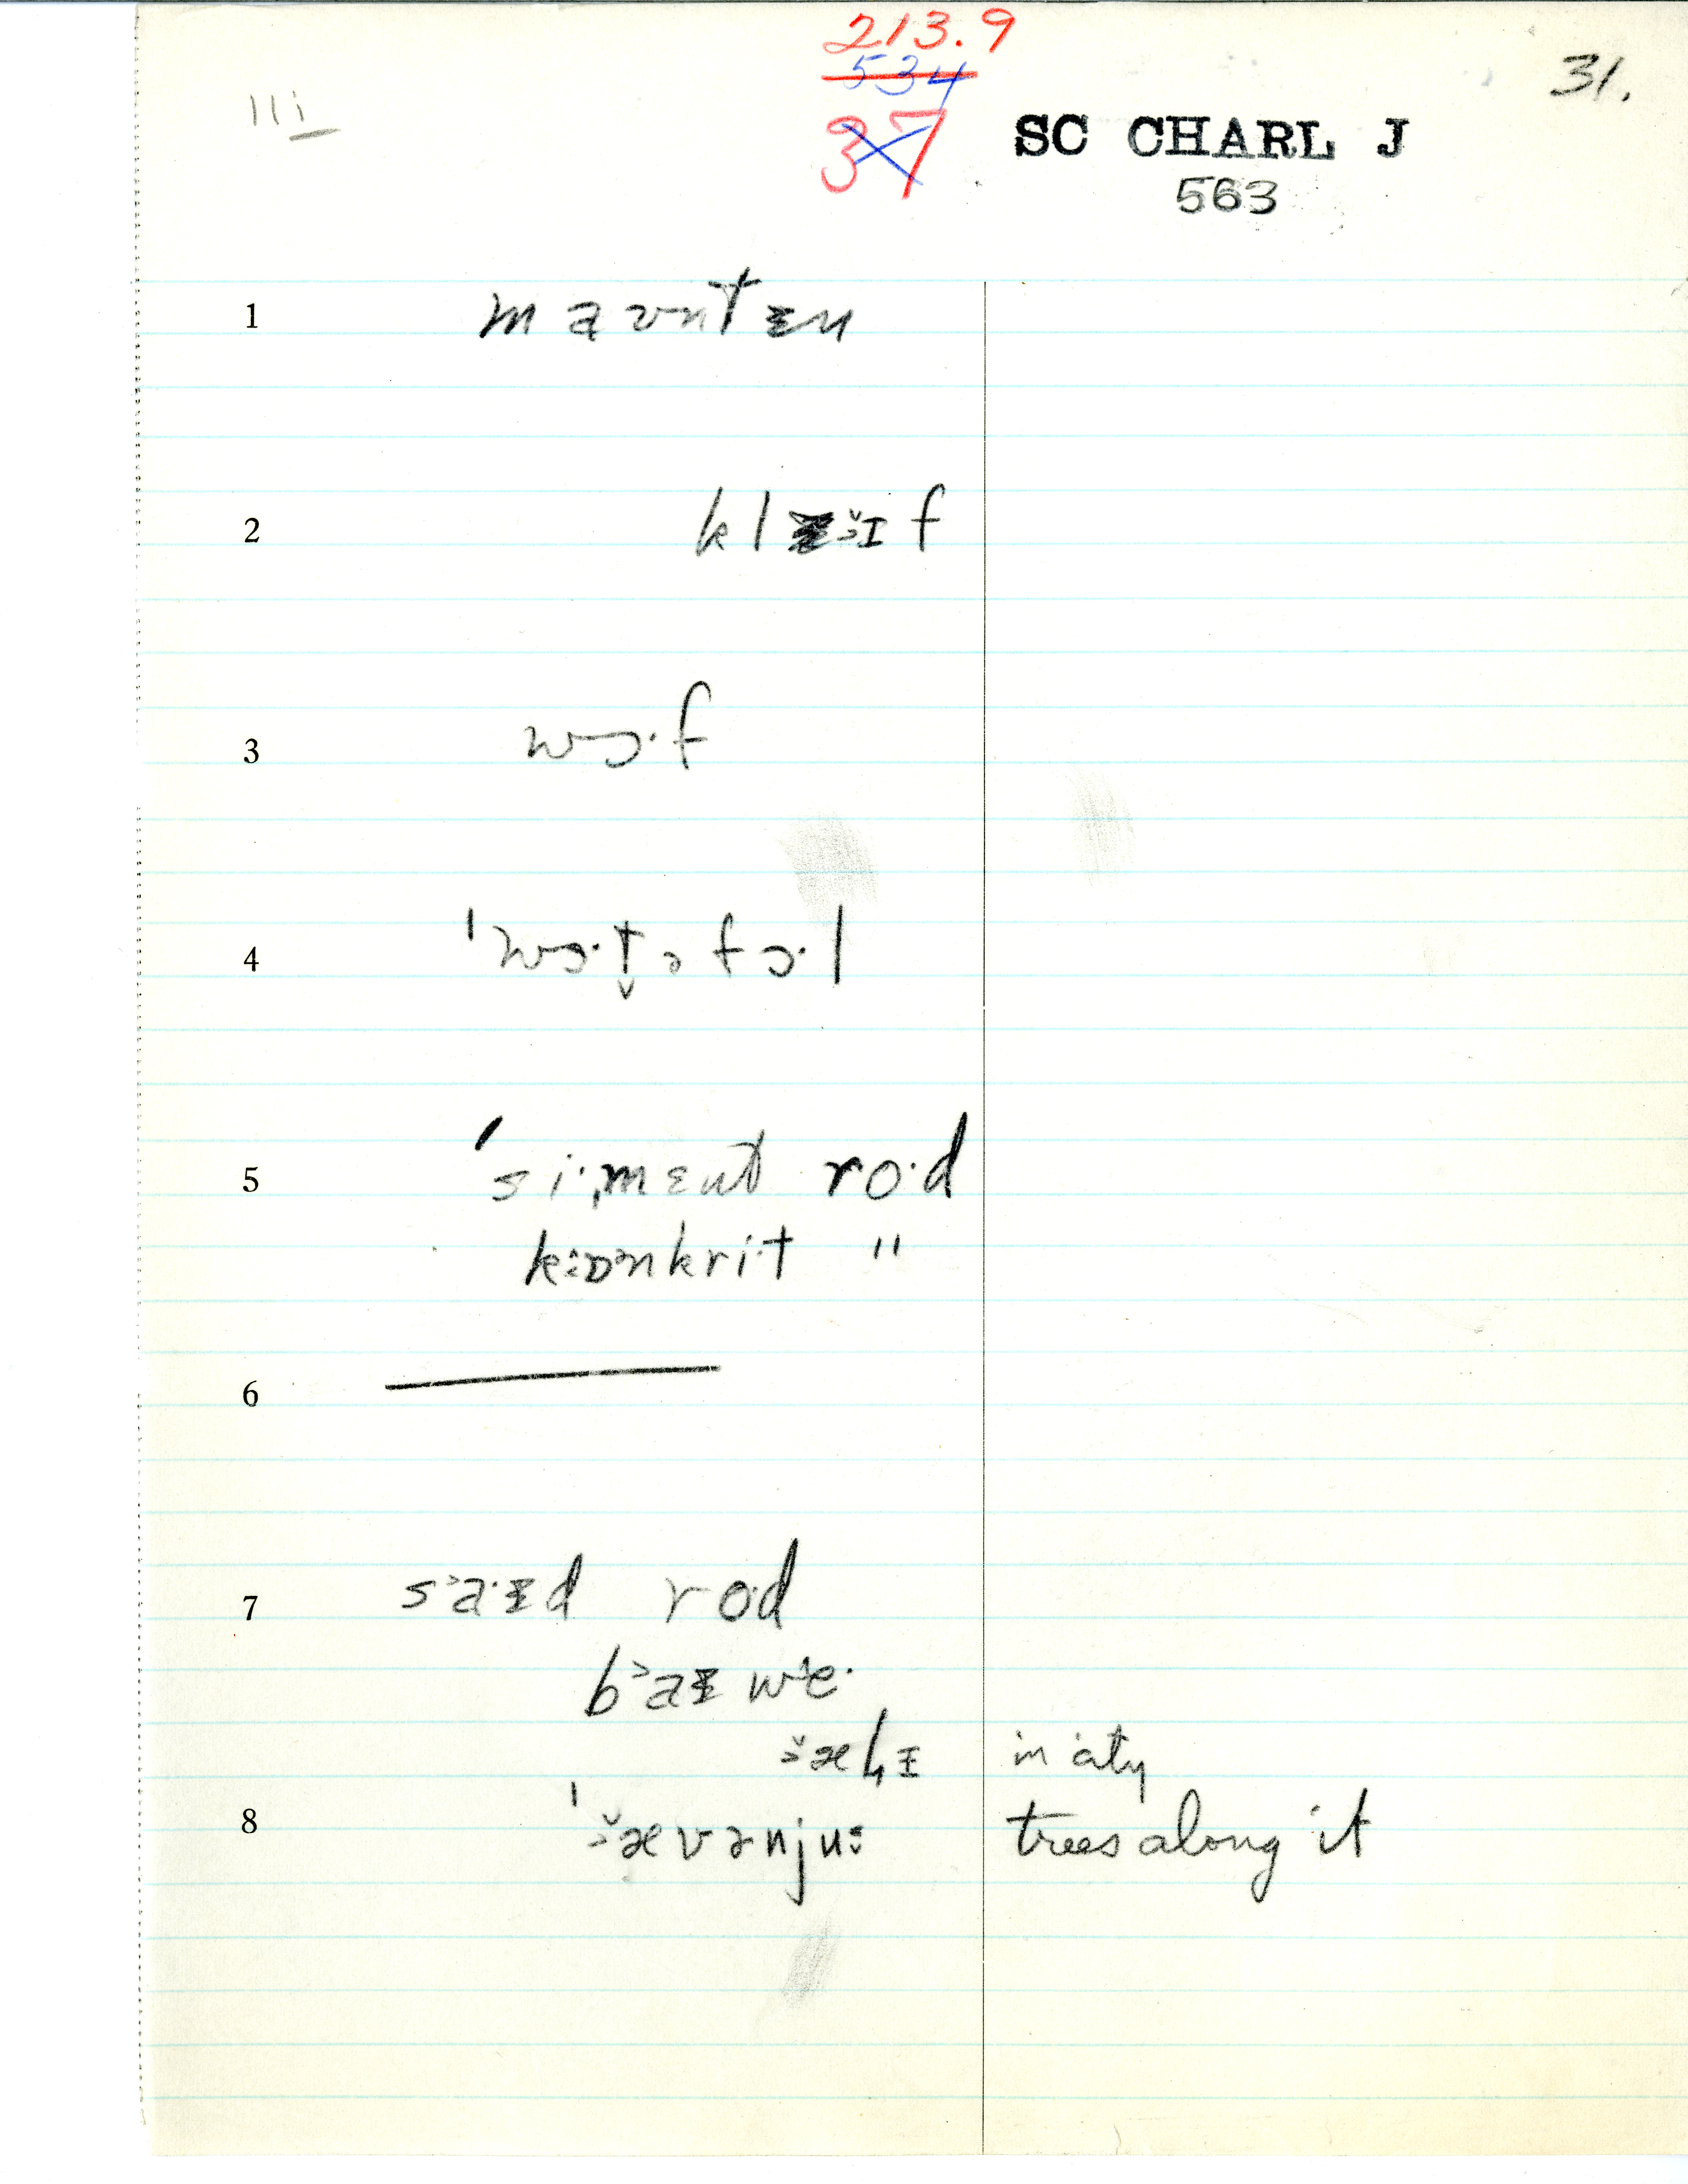 213.9
534
37
31.
IIi
SC CHARL J
563
1 maʊntɪn
2 klɪf
3 wɔ·f
4 ˈwɔ·t̬əfɔ·l
5 ˈsi·ˌmɛnt ro·d
kɒnkri·t "
6
7 sa·ɪd rod
baɪ we·
ælɪ in city
8 ˈævənju: trees along it